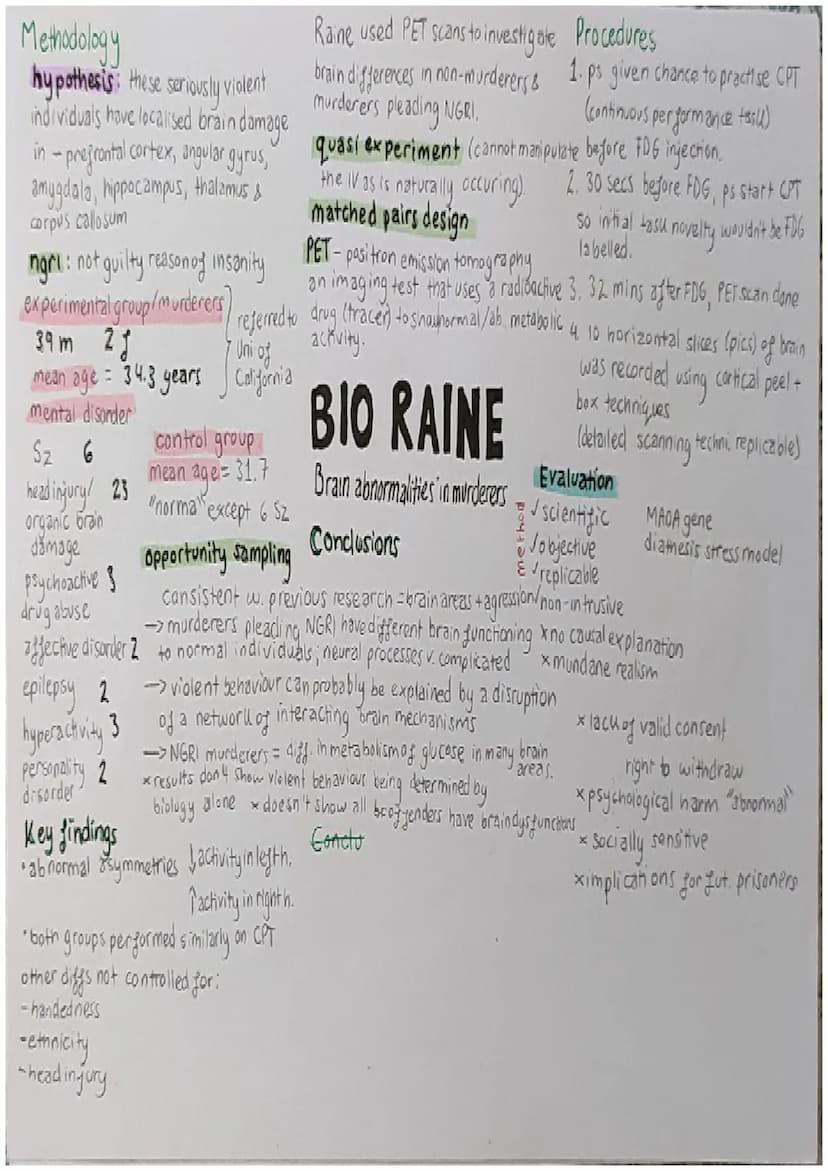 Methodology
hypothesis: these seriously violent
individuals have localised brain damage
in - prefrontal cortex, angular gyrus,
amygdala, hippocampus, thalamus &
corpus callosum
ngri: not guilty reason of insanity
experimental group/murderers
39m 2f
mean age = 34.3 years
referred to
Uni of
California
mental disorder
Sz 6
head injury/ 23
organic brain
damage
psychoactive 3
drug abuse
affective disorder 2
epilepsy 2
hyperactivity 3
personality 2
disorder
control group
mean age = 31.7
"norma" except 6 Sz
opportunity sampling
Key findings
• abnormal asymmetries ↓activity in left h.
↑activity in right h.
• both groups performed similarly on CPT
other diffs not controlled for:
- handedness
- ethnicity
- head injury
Raine used PET scans to investigate
brain differences in non-murderers &
murderers pleading NGRI.
quasi experiment (cannot manipulate
the IV as is naturally occuring)
matched pairs design
PET - positron emission tomography
an imaging test that uses a radioactive
drug (tracer) to show normal/ab. metabolic
activity.
BIO RAINE
Brain abnormalities in murderers
Conclusions
consistent w. previous research = brain areas + agression
→ murderers pleading NGRI have different brain functioning
to normal individuals; neural processes v. complicated
→ violent behaviour can probably be explained by a disruption
of a network of interacting brain mechanisms
→ NGRI murderers = diff. in metabolism of glucose in many brain
areas.
× results don't show violent behaviour being determined by
biology alone × doesn't show all offenders have brain dysfunctions
Conclu
Procedures
1. ps given chance to practise CPT
(continuous performance task)
before FDG injection.
2. 30 secs before FDG, ps start CPT
so initial task novelty wouldn't be FDG
labelled.
3. 32 mins after FDG, PET scan done
4. 10 horizontal slices (pics) of brain
was recorded using cortical peel +
box techniques
(detailed scanning techni. replicable)
Evaluation
method
✓ scientific
✓ objective
✓ replicable
✓ non-intrusive
MAOA gene
diathesis stress model
× no causal explanation
× mundane realism
× lack of valid consent
right to withdraw
× psychological harm "abnormal"
× socially sensitive
× implications for fut. prisoners